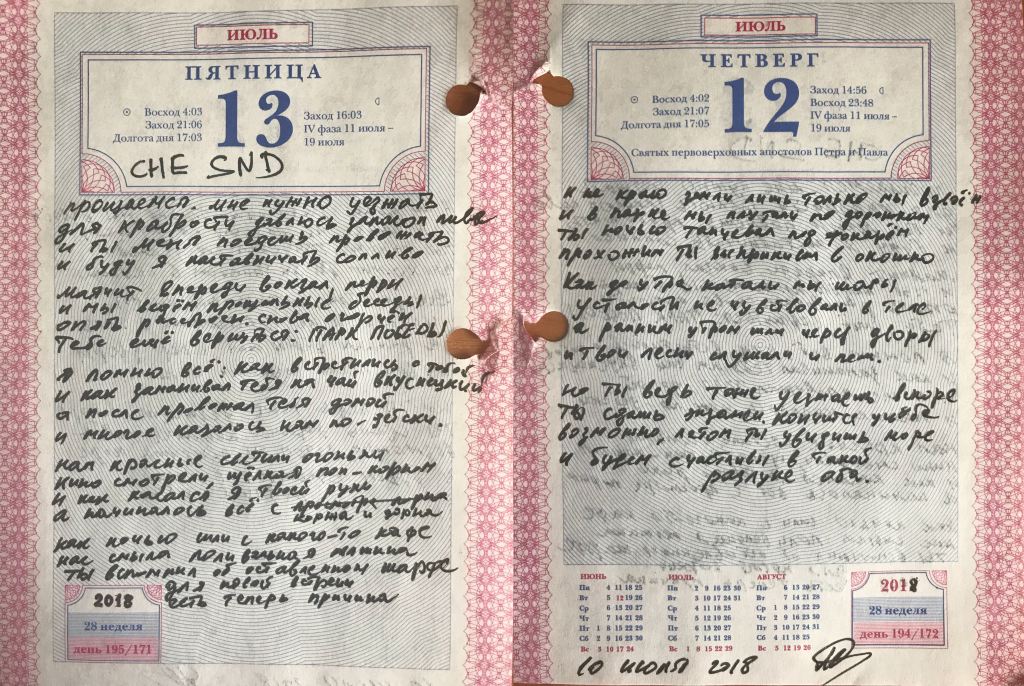 ИЮЛЬ
ПЯТНИЦА
13
Восход 4:03
Заход 21:06
Долгота дня 17:03
Заход 16:03
IV фаза 11 июля –
19 июля
CHE SND
прощаемся. мне нужно уезжать
для храбрости давлюсь запасом пива
и ты меня поедешь провожать
и буду я наставничать сопливо
маячит впереди вокзал, перрон
и мы ведём прощальные беседы
опять расстроен. снова огорчён
тебе ещё вернуться: ПАРК ПОБЕДЫ
я помню всё: как встретились с тобой
и как заманивал тебя на чай вкуснецкий
а после провожал тебя домой
и многое казалось нам по-детски.
нам красные светили огоньки
кино смотрели, щёлкая поп-корном
и как касался я твоей руки
а начиналось всё с порта и порна
как ночью шли с какого-то кафе
нас смыла поливальная машина
ты вспомнил об оставленном шарфе
для новой встречи
есть теперь причина
2018
28 неделя
день 195/171
ИЮЛЬ
ЧЕТВЕРГ
12
Восход 4:02
Заход 21:07
Долгота дня 17:05
Заход 14:56
Восход 23:48
IV фаза 11 июля –
19 июля
Святых первоверховных апостолов Петра и Павла
и на краю земли лишь только мы вдвоём
и в парке мы плутали по дорожкам
ты ночью танцевал под фонарём
прохожим ты выприкивал в окошко
как до утра катали мы шары
усталости не чувствовали в теле
а ранним утром шли через дворы
и твои песни слушали и пели.
но ты ведь тоже уезжаешь вскоре
ты сдашь экзамен. кончится учёба
возможно, летом ты увидишь море
и будем счастливы в такой
разлуке оба.
ИЮНЬ ИЮЛЬ АВГУСТ
Пн 4 11 18 25 Пн 2 9 16 23 30 Пн 6 13 20 27
Вт 5 12 19 26 Вт 3 10 17 24 31 Вт 7 14 21 28
Ср 6 13 20 27 Ср 4 11 18 25 Ср 1 8 15 22 29
Чт 7 14 21 28 Чт 5 12 19 26 Чт 2 9 16 23 30
Пт 1 8 15 22 29 Пт 6 13 20 27 Пт 3 10 17 24 31
Сб 2 9 16 23 30 Сб 7 14 21 28 Сб 4 11 18 25
Вс 3 10 17 24 Вс 1 8 15 22 29 Вс 5 12 19 26
2018
28 неделя
день 194/172
10 июля 2018